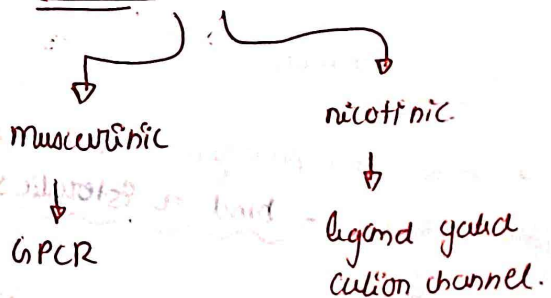 muscurinic
nicotinic.
GPCR
ligand gated
cation channel.